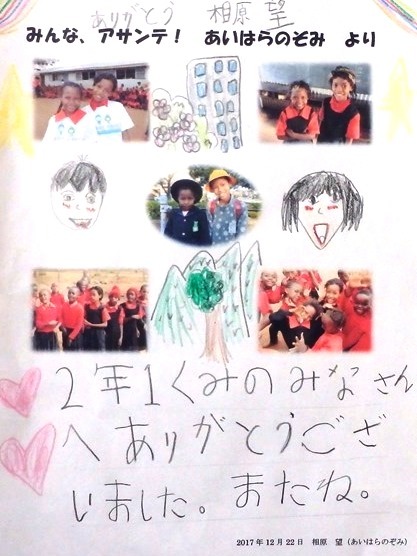 ありがとう 相原 望
みんな、アサンテ！ あいはらのぞみ より
２年１くみのみなさん
へ ありがとうござ
いました。またね。
2017年12月22日 相原 望（あいはらのぞみ）